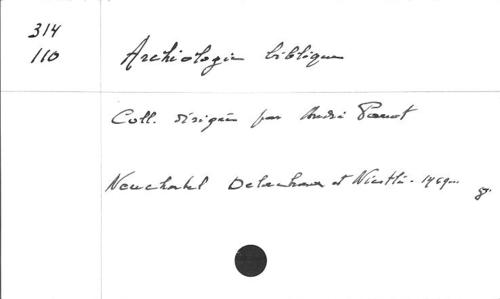 314
110
Archéologie biblique
Coll. dirigée par André Parrot
Neuchatel Delachaux et Niestlé - 1969